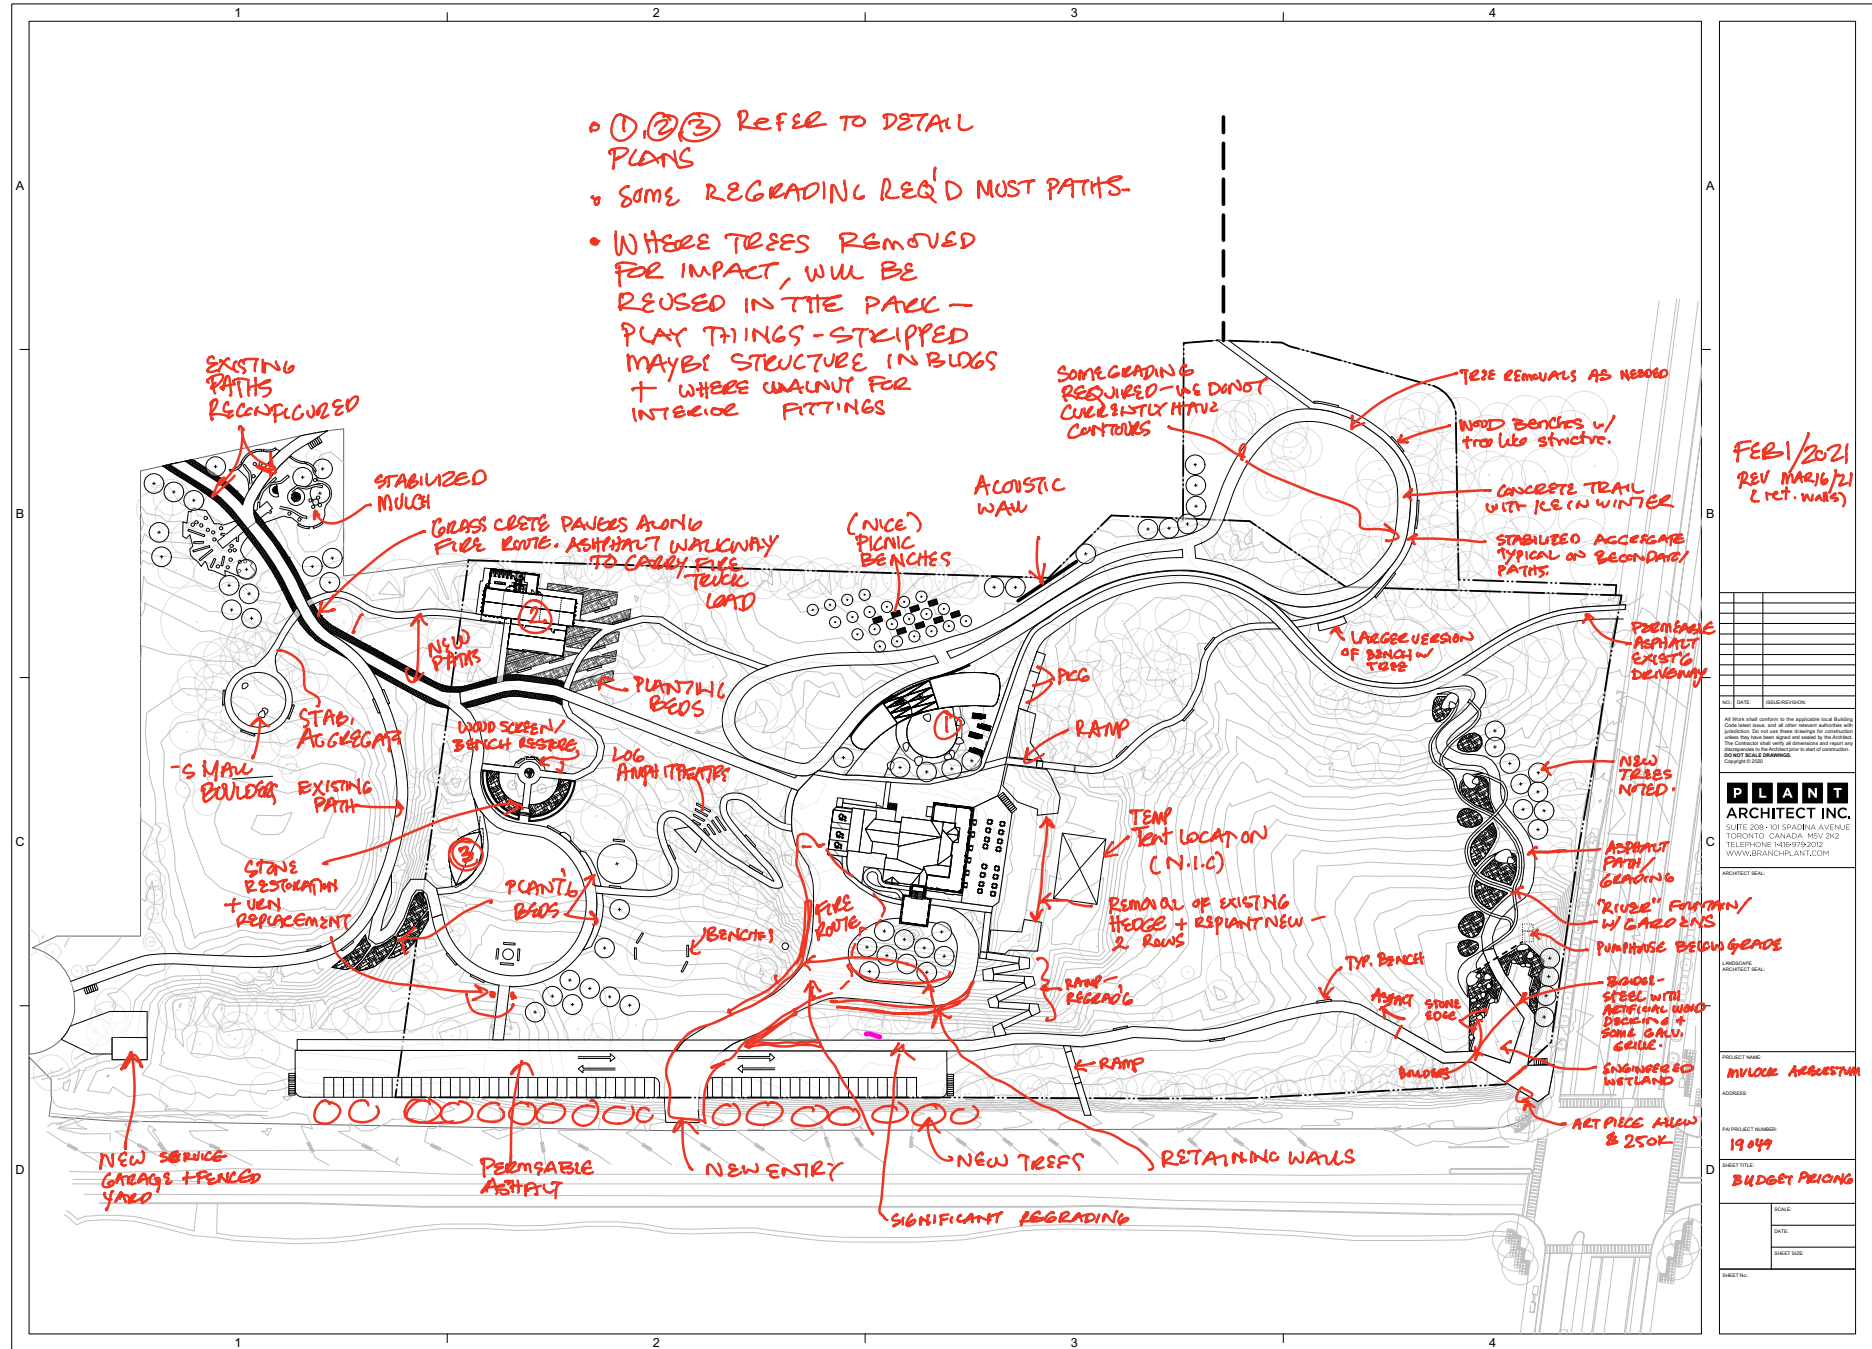 1
2
3
4
A
A
B
B
C
C
D
D
1
2
3
4
• ①,②,③ REFER TO DETAIL
PLANS
• SOME REGRADING REQ'D MOST PATHS-
• WHERE TREES REMOVED
FOR IMPACT, WILL BE
REUSED IN THE PARK —
PLAY THINGS - STRIPPED
MAYBE STRUCTURE IN BLDGS
+ WHERE WALNUT FOR
INTERIOR FITTINGS
EXISTING
PATHS
RECONFIGURED
STABILIZED
MULCH
GRASS CRETE PAVERS ALONG
FIRE ROUTE. ASHPHALT WALKWAY
TO CARRY FIRE
TRUCK
LOAD
(NICE)
PICNIC
BENCHES
ACOUSTIC
WALL
SOME GRADING
REQUIRED - WE DO NOT
CURRENTLY HAVE
CONTOURS
TREE REMOVALS AS NEEDED
WOOD BENCHES w/
tree like structure.
CONCRETE TRAIL
WITH ICE IN WINTER
STABILIZED AGGREGATE
TYPICAL ON SECONDARY
PATHS.
LARGER VERSION
OF BENCH w/
TREE
PERMEABLE
ASPHALT
EXIST'G
DRIVEWAY
2.
NEW
PATHS
PLANTING
BEDS
STAB.
AGGREGATE
-SMALL
BOULDERS
EXISTING
PATH
WOOD SCREEN/
BENCH RESTORE
LOG
AMPHITHEATRE
1
PKG
RAMP
3
STONE
RESTORATION
+ URN
REPLACEMENT
PLANT'G
BEDS
BENCHES
FIRE
ROUTE
TEMP
TENT LOCATION
(N.I.C)
REMOVAL OF EXISTING
HEDGE + REPLANT NEW -
2 ROWS
RAMP -
REGRAD'G
NEW
TREES
NOTED.
ASPHALT
PATH/
GRADING
"RIVER" FOUNTAIN/
W/ GARDENS
PUMPHOUSE BELOW GRADE
TYP. BENCH
STONE
EDGE
BRIDGE -
STEEL WITH
ARTIFICIAL WOOD
DECKING +
SOME GALV.
GRILLE.
BOULDERS
ENGINEERED
WETLAND
RAMP
ART PIECE ALLOW
$ 250K
NEW SERVICE
GARAGE + FENCED
YARD
PERMEABLE
ASPHALT
NEW ENTRY
NEW TREES
RETAINING WALLS
SIGNIFICANT REGRADING
FEB 1/2021
REV MAR 16/21
(ret. walls)
NO.: DATE: ISSUE/REVISION:
All Work shall conform to the applicable local Building
Code latest issue, and all other relevant authorities with
jurisdiction. Do not use these drawings for construction
unless they have been signed and sealed by the Architect.
The Contractor shall verify all dimensions and report any
discrepancies to the Architect prior to start of construction.
DO NOT SCALE DRAWINGS.
Copyright © 2020
PLANT
ARCHITECT INC.
SUITE 208 • 101 SPADINA AVENUE
TORONTO CANADA M5V 2K2
TELEPHONE 1•416•979•2012
WWW.BRANCHPLANT.COM
ARCHITECT SEAL:
LANDSCAPE
ARCHITECT SEAL:
PROJECT NAME:
MULOCK ARBORETUM
ADDRESS:
PA PROJECT NUMBER:
19049
SHEET TITLE:
BUDGET PRICING
SCALE:
DATE:
SHEET SIZE:
SHEET No.: